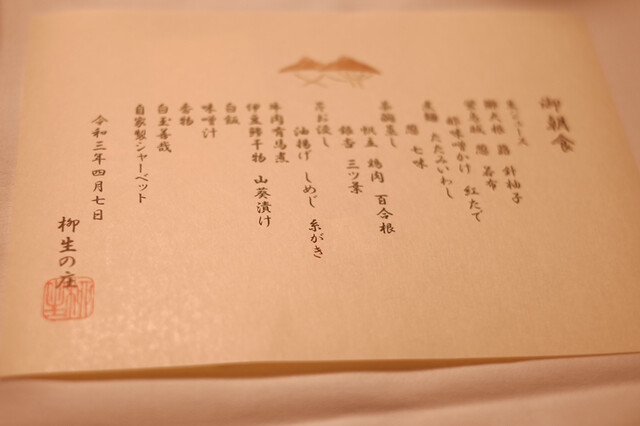 御朝食
生ジュース
針柚子
酢味噌かけ 紅たで
たたみいわし
葱 七味
茶碗蒸し
帆立 鶏肉 百合根
銀杏 三ツ葉
芹お浸し
油揚げ しめじ 糸がき
牛肉有馬煮
伊豆鯵干物 山葵漬け
白飯
味噌汁
香物
白玉善哉
自家製シャーベット
令和三年四月七日
柳生の庄